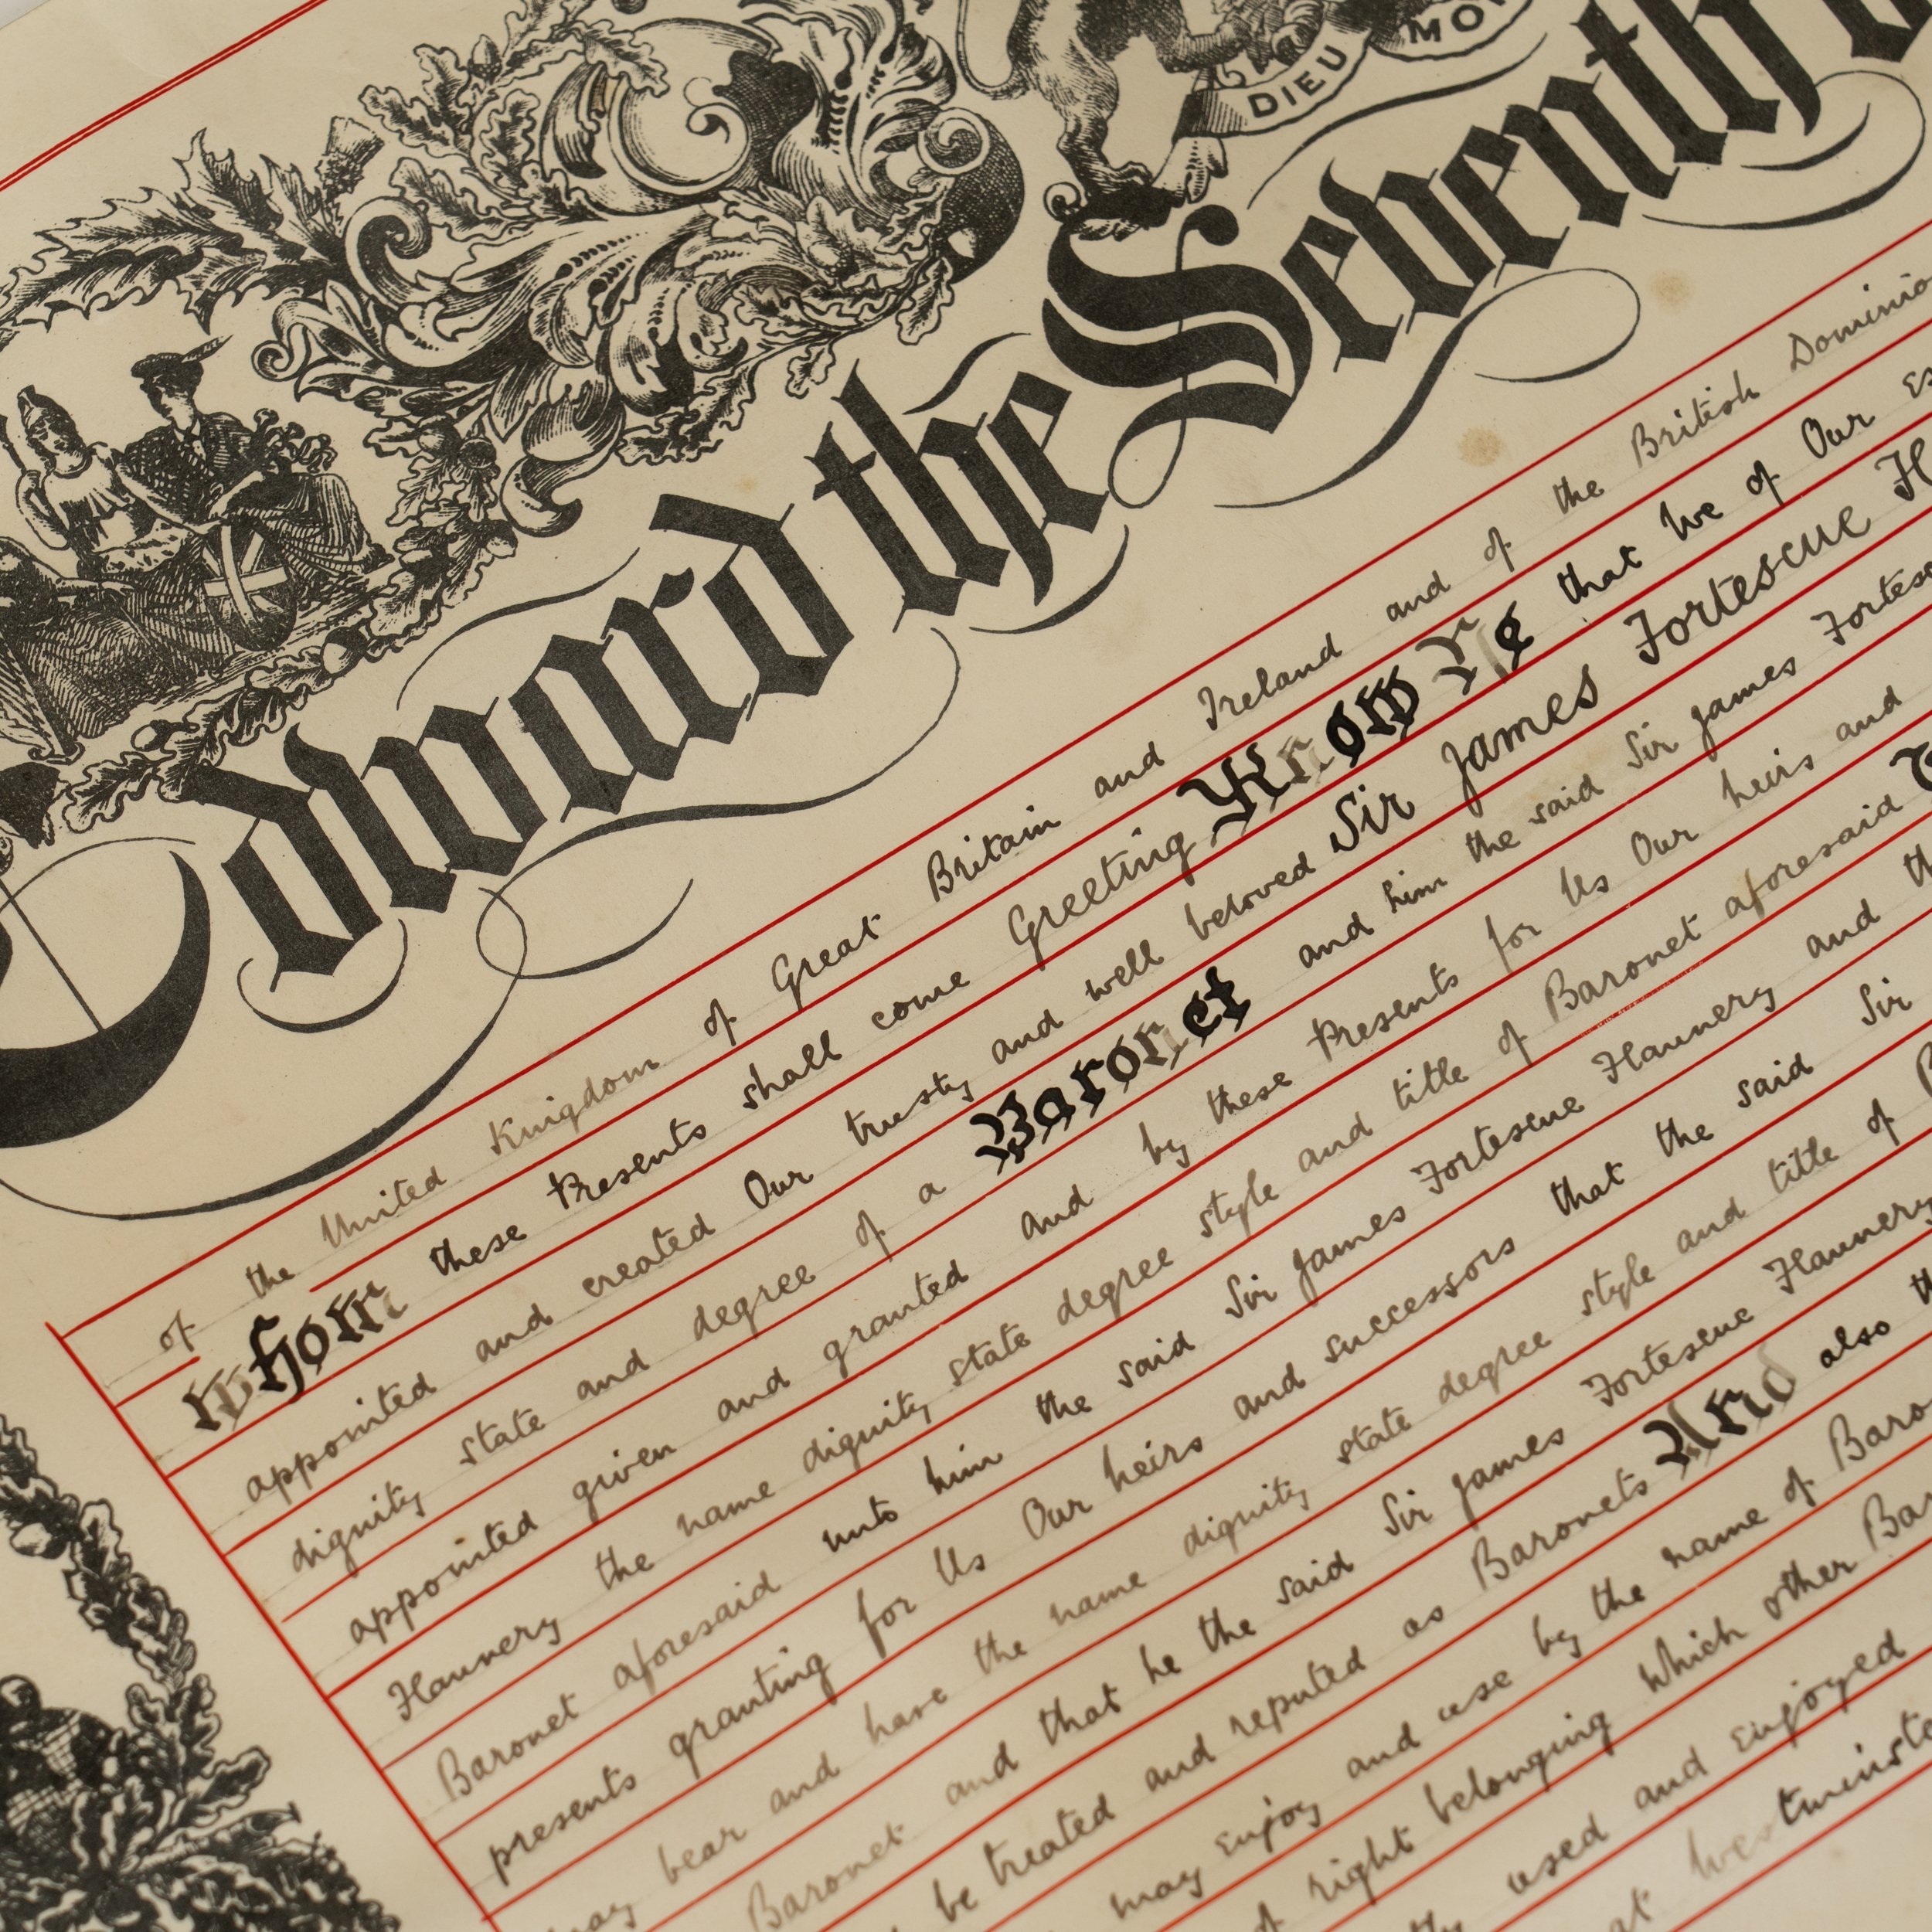 DIEU
Edward the Seventh
of the United Kingdom of Great Britain and Ireland and of the British
Whom these Presents shall come Greeting Know Ye that We of Our
appointed and created Our trusty and well beloved Sir James Fortescue
dignity state and degree of a Baronet and him the said Sir James
appointed given and granted and by these Presents for Us Our heirs and
Flannery the name dignity state degree style and title of Baronet aforesaid
Baronet aforesaid unto him the said Sir James Fortescue Flannery and
presents granting for Us Our heirs and successors that the said Sir
may bear and have the name dignity state degree style and title of
Baronet and that he the said Sir James Fortescue Flannery
be treated and reputed as Baronets And also
may enjoy and use by the name of
of right belonging which other
used and enjoyed
at